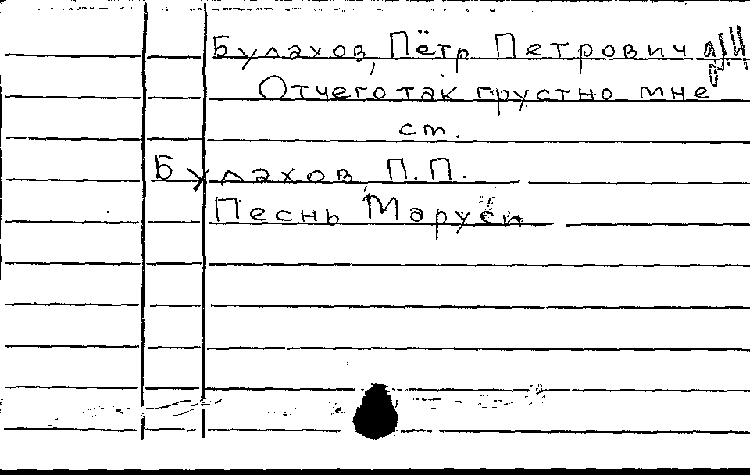 Булахов, Пётр Петрович
Отчего так грустно мне
ст.
Булахов, П.П.
Песнь Маруси